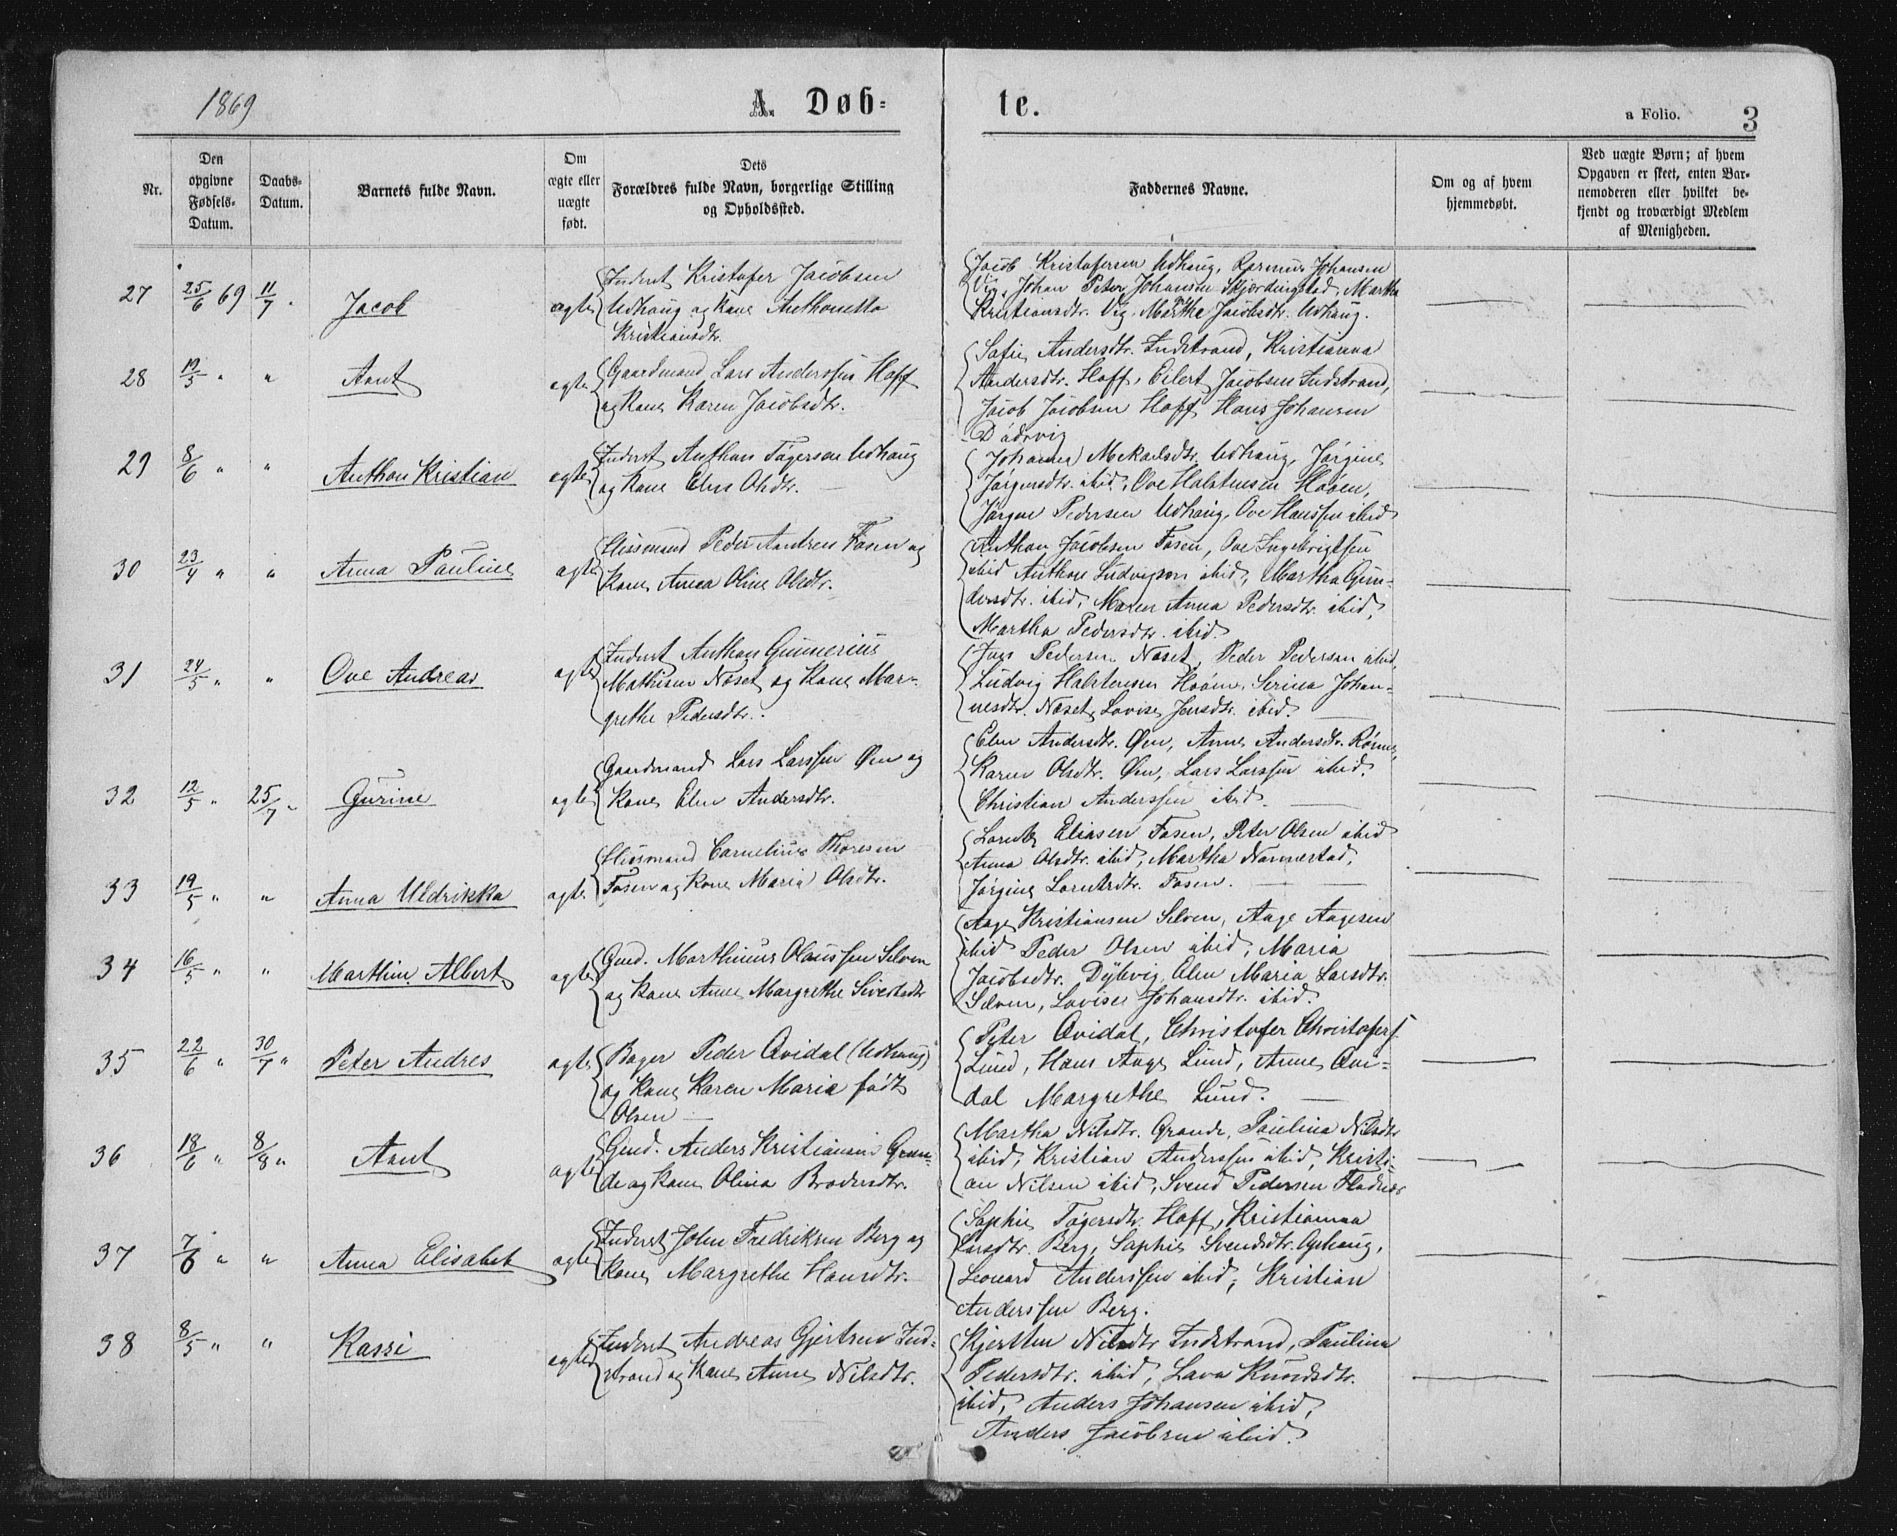 1869
A. Døb-
te.
a Folio.
3
Nr.
Den
opgivne
Fødsels-
Datum.
Daabs-
Datum.
Barnets fulde Navn.
Om
ægte eller
uægte
født.
Dets
Forældres fulde Navn, borgerlige Stilling
og Opholdssted.
Faddernes Navne.
Om og af hvem
hjemmedøbt.
Ved uægte Børn; af hvem
Opgaven er skeet, enten Bar-
nemoderen eller hvilket be-
kjendt og troværdigt Medlem
af Menigheden.
27 25/6 69 11/7 Jacob ægte
Inderst Kristofer Jacobsen
Udhaug og Kone Anthonetta
Kristiansdtr.
Jacob Kristofersen Udhaug, Rasmus Johansen
Vig, Johan Peter Johansen Skjærdingstad, Martha
Kristiansdtr. Vig, Marthe Jacobsdtr. Udhaug.
28 19/5 " " Arnt ægte
Gaardmand Lars Anderssen Hoff
og Kone Karen Jacobsdtr.
Sofie Andersdtr. Indstrand, Kristianna
Andersdtr. Hoff, Eilert Jacobsen Indstrand,
Jacob Jacobsen Hoff, Hans Johansen
29 8/6 " " Anthon Kristian ægte
Inderst Anthon Tøgersen Udhaug
og Kone Elen Olsdtr.
Johanna Mekaelsdtr. Udhaug, Jørgine
Jørgensdtr. ibid, Ove Halstensen Hoøen,
Jørgen Pedersen Udhaug, Ove Hanssen ibid
30 23/4 " " Anna Pauline ægte
Huusmand Peder Andreas Fosen og
Kone Anna Oline Olsdtr.
Anthon Jacobsen Fosen, Ove Ingebrigtsen
ibid Anthon Ludvigsen ibid, Martha Gun-
dersdtr. ibid, Maren Anna Pedersdtr. ibid,
Martha Pedersdtr. ibid.
31 24/5 " " Ove Andreas ægte
Inderst Anthon Gunnerius
Mathisen Næset og Kone Mar-
grethe Pedersdtr.
Jens Pedersen Næset, Peder Pedersen ibid,
Ludvig Halstensen Hoøen, Serina Johan-
nesdtr. Næset, Lovise Jensdtr. ibid.
32 12/5 " 25/7 " Gurine ægte
Gaardmand Lars Larssen Øen og
Kone Elen Andersdtr.
Elen Andersdtr. Øen, Anne Andersdtr. Rønne,
Karen Olsdtr. Øen, Lars Larssen ibid,
Christian Anderssen ibid.
33 19/5 " " Anna Uldrikka ægte
Huusmand Cornelius Thoresen
Fosen og Kone Maria Olsdtr.
Lorents Eliasen Fosen, Peter Olsen ibid
Anna Olsdtr. ibid, Martha Nannestad,
Jørgine Lorntsdtr. Fosen.
34 16/5 " " Marthin Albert ægte
Gmd. Marthinus Olaussen Selven
og Kone Anne Margrethe Sivertsdtr
Aage Kristiansen Selven, Aage Aagesen
ibid Peder Olsen ibid, Maria
Jacobsdtr. Dybvig, Olen Maria Larsdtr.
Selven, Lovise Johansdtr. ibid.
35 22/6 " 30/7 " Peter Andres ægte
Bager Peder Qvidal (Udhaug)
og Kone Karen Maria født
Olsen
Peter Qvidal, Christofer Christofers.
Lund, Hans Aage Lund, Anne Qvi-
dal Margrethe Lund.
36 18/6 " 8/8 " Arnt ægte
Gmd. Anders Kristiansen Gran-
de og Kone Olina Brodersdtr.
Martha Nilsdtr. Grande, Paulina Nilsdtr
ibid, Kristian Anderssen ibid, Kristi-
an Nilsen ibid, Svend Pedersen Fladnes
37 7/6 " " Anna Elisabet ægte
Inderst John Fredriksen Berg og
Kone Margrethe Hansdtr.
Sophie Tøgersdtr. Hoff, Kristianna
Larsdtr. Berg, Sophie Svendsdtr. Ophaug,
Leonard Anderssen ibid, Kristian
Anderssen Berg.
38 8/5 " " Kassi ægte
Inderst Andreas Gjertsen Ind-
strand og Kone Anne Nilsdtr.
Kjersten Nilsdtr Indstrand, Paulina
Pedersdtr. ibid, Lava Knudsdtr.
ibid, Anders Johansen ibid,
Anders Jacobsen ibid.